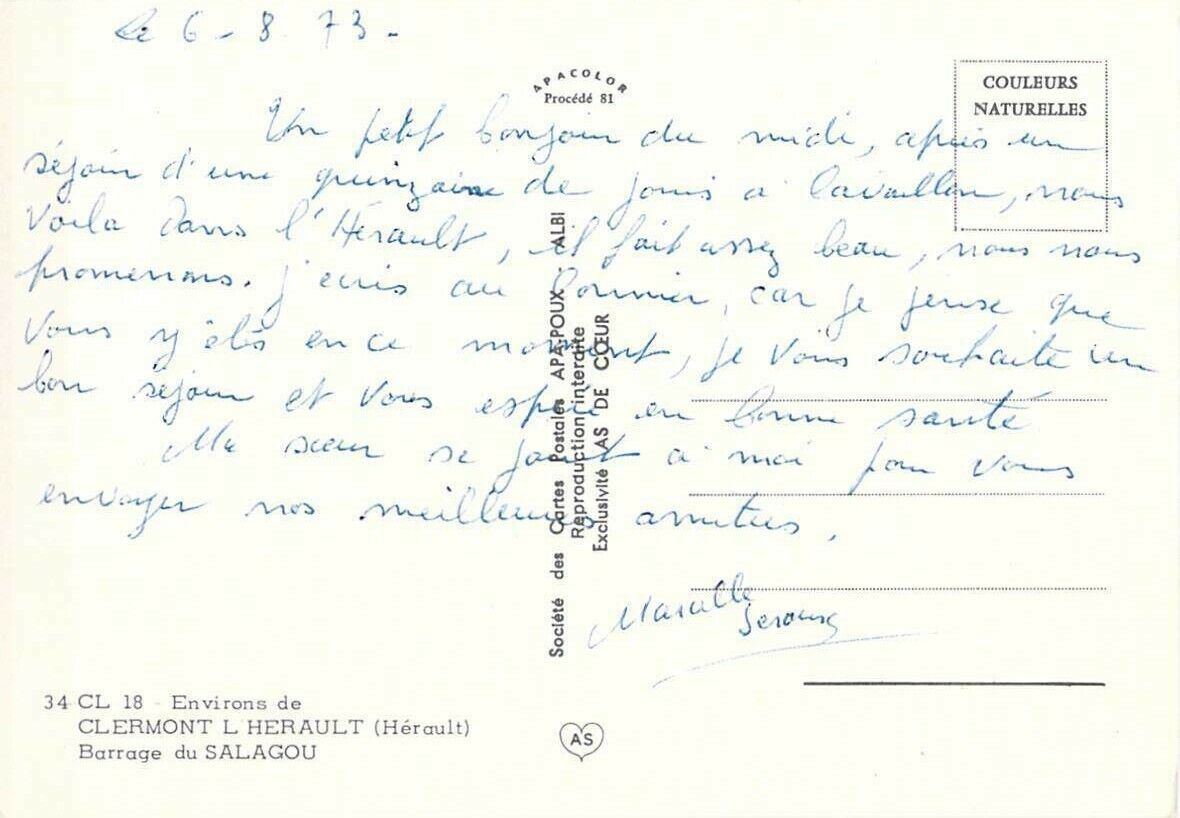 Le 6-8 73-
APACOLOR
Procédé 81
COULEURS
NATURELLES
Un petit bonjour du midi, après un
séjour d'une quinzaine de jours à Cavaillon, nous
voila dans l'Hérault, il fait assez beau, nous nous
promenons. j'écris au car je pense que
vous y êtes en ce moment, je vous souhaite un
bon séjour et vous espère en bonne santé
Ma sœur se joint à moi pour vous
envoyer nos meilleures amitiés,
Marcelle
Société des Cartes Postales APA-POUX - ALBI
Reproduction interdite
Exclusivité AS DE CŒUR
34 CL 18 - Environs de
CLERMONT L HERAULT (Hérault)
Barrage du SALAGOU
AS